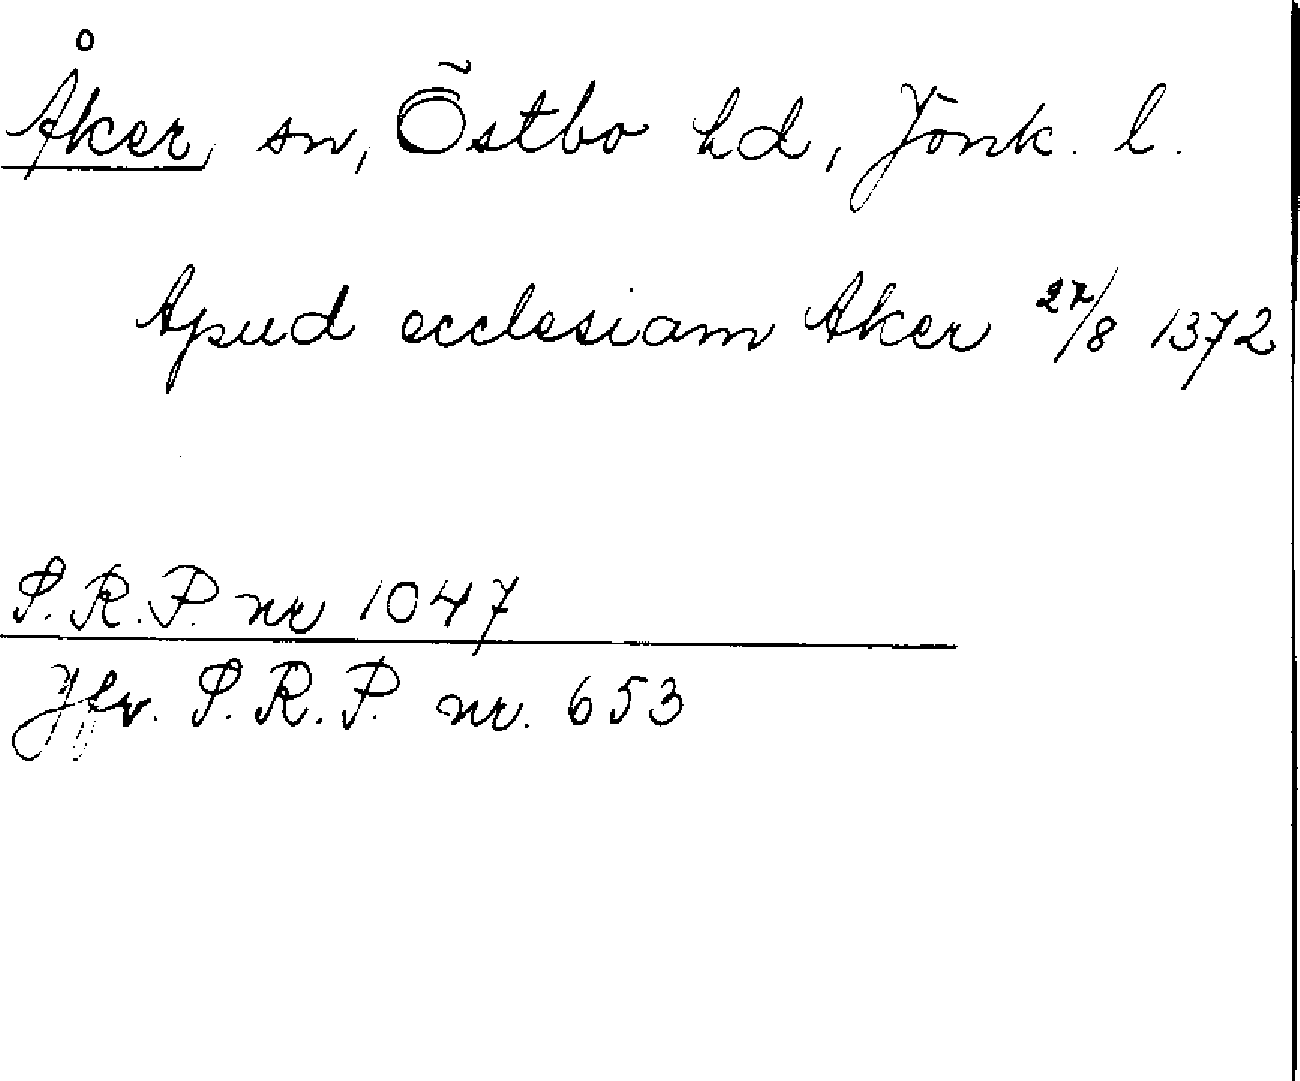 Åker, sn, Östbo hd, Jönk. l.
Apud ecclesiam Aker 27/8 1372
S.R.P. nr 1047
Jfr. S.R.P. nr. 653